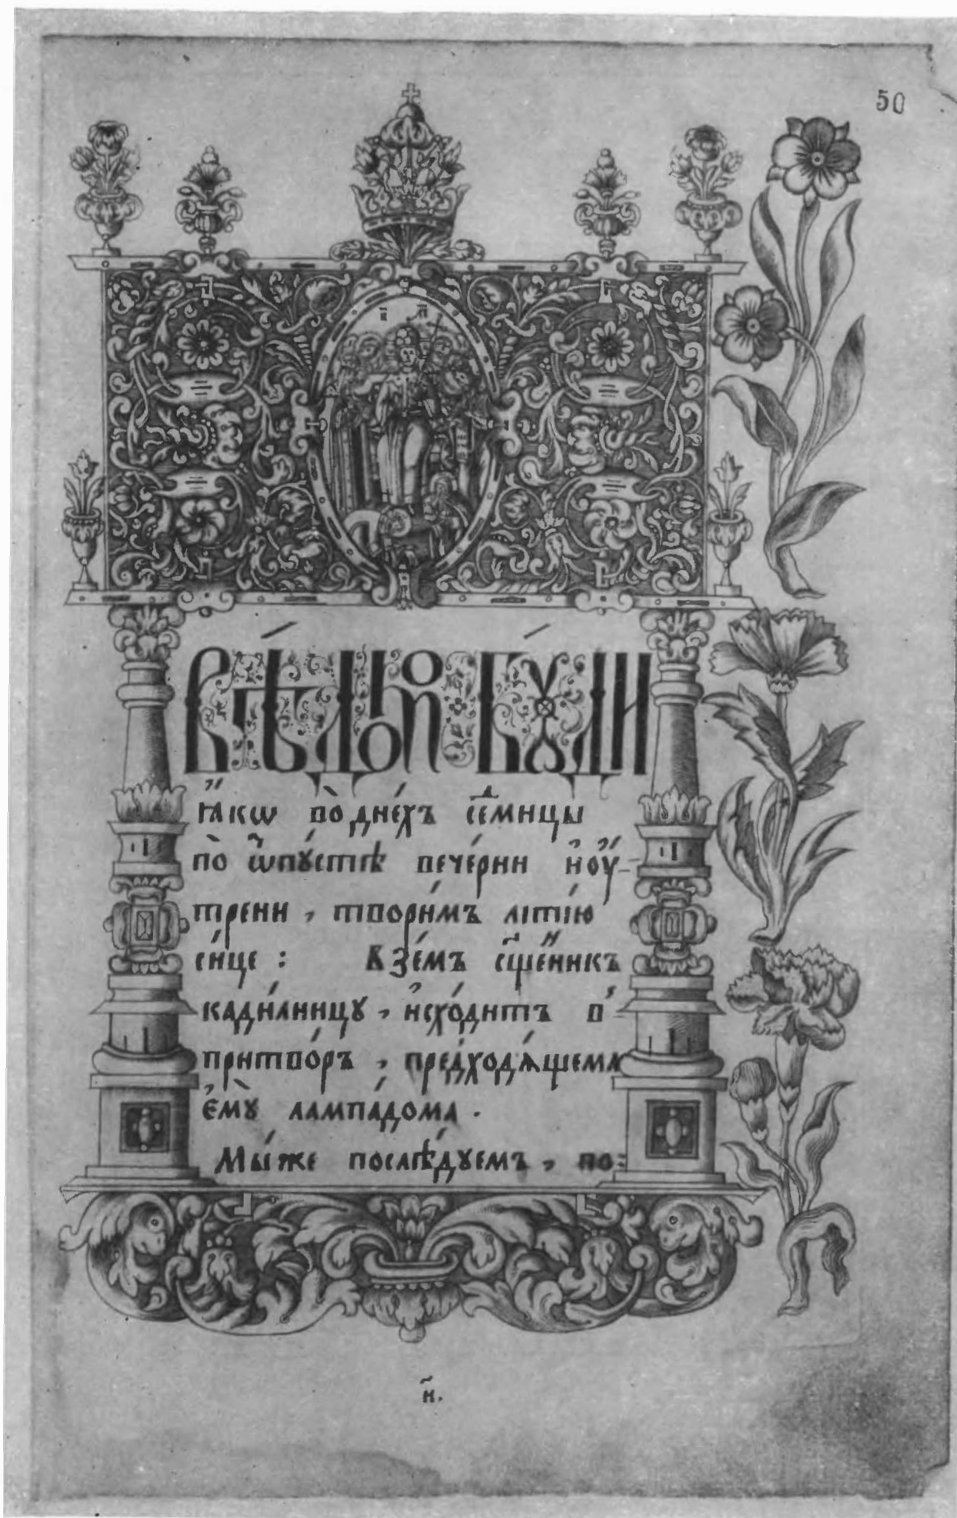 50
вѣ́домо бꙋ́ди
ꙗ҆́кѡ по̀ дне́хъ се́дмицы
по̀ ѿпꙋстѣ̀ вече́рни и҆ оу҆́-
трени , твори́мъ літі́ю
си́це : взе́мъ сщ҃е́нникъ
кади́лницꙋ , и҆схо́дитъ в̾
притво́ръ , предходѧ́щема
є҆мꙋ̀ лампа́дома .
мы́ же послѣ́дꙋемъ , по-
и҃.